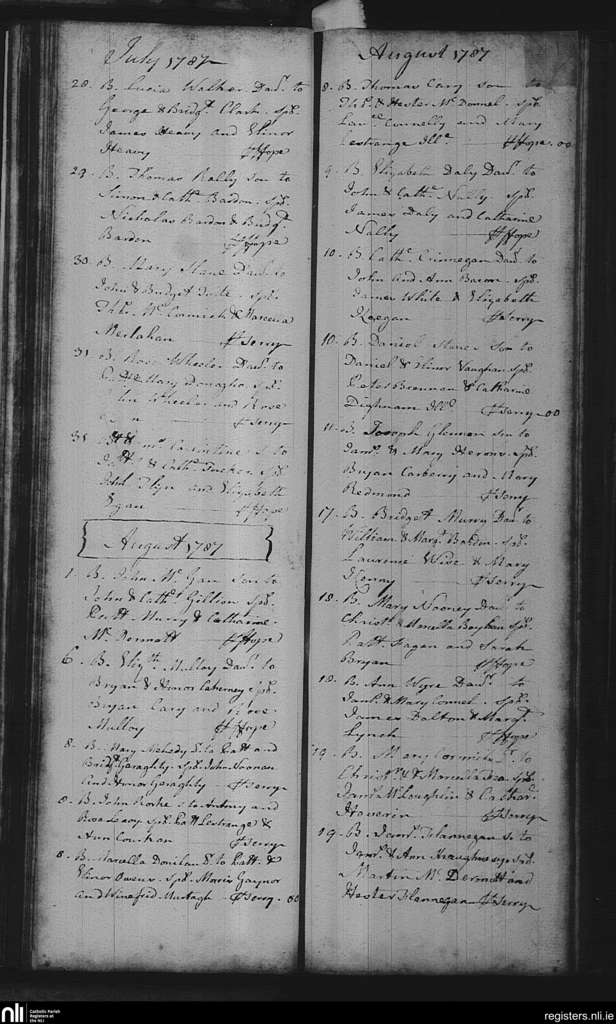 July 1787
28. B. Lucia Walker Daur. to
George & Bridgt. Clark. Sps.
James Heavy and Elinor
Heavy Hope
29. B. Thomas Rally son to
Simon & Cath. Bardon. Sps.
Nicholas Bardon & Bridgt.
Bardon Hope
30. B. Mary Slane Daur. to
John & Bridget Tuite. Sps.
McCormick & Marcella
Merlahan Serry
31 B. Rose Wheeler Daur. to
Mary Donagho Sps.
Wheeler and Rose
Serry
31 Carentine S. to
& Cath. Tucker. Sps.
John Flyn and Elizabeth
Egan Hope
August 1787
1. B. John Mc. Gan Son to
John & Catht. Gillion Sps.
Murry & Catharine
Mc. Dermott Hope
6. B. Elizth. Mulloy Daur. to
Bryan & Honor Caherney Sps.
Bryan Cary and Rose
Mulloy Hope
8. B. Mary to Patt and
Bridgt. Geraghty. Sps. John Noonan
and Honor Geraghty Serry
8. B. John Rorke S. to Antony and
Rose Leavy Sps. Patt Lestrange &
Ann Serry
8. B. Marcella Donilon to Patt. &
Elinor Owens. Sps. Morris Gaynor
and Winefred Murtagh Serry. 00
August 1787
8. B. Thomas Cary son to
& Hester Mc. Donnel. Sps.
Connelly and Mary
Lestrange Ille. Hope. 00
9. B. Elizabeth Daly Daur. to
John & Cath. Nally. Sps.
James Daly and Catharine
Nally Hope
10. B. Cath. Crinnegan Daur. to
John and Ann Bacon. Sps.
James White & Elizabeth
Keegan Serry
10. B. Daniel Son to
Daniel & Elinor Vaughan Sps.
Peter Brennan & Catharine
Digenam Ille. Serry 00
11. B. Joseph Glennon Son to
Jams. & Mary Herons. Sps.
Bryan Carberry and Mary
Redmond Serry
17. B. Bridget Murry Daur. to
William & Margt. Bardon. Sps.
Laurence Wise & Mary
Kenny Serry
18. B. Mary Nooney Daur. to
Christr. & Marcella Boyhan Sps.
Patt. Fagan and Sarah
Bryan Hope
18. B. Ann Wyre Daur. to
& Mary Connel. Sps.
James Dalton & Margt.
Lynch Hope
19. B. Mary Cormick to
Christr. & Marcella Sps.
Jams. McLoughlin & Cathar.
Haverin Serry
19. B. Jams. Flannegan S. to
Jams. & Ann Sps.
Martin Mc. Dermott and
Hester Flannegan Serry
nli
Catholic Parish
Registers at
the NLI
registers.nli.ie